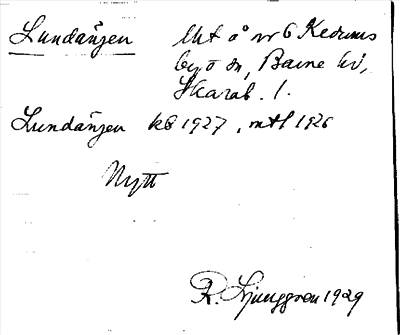 Lundängen Lht å nr 6 Kedums
by o sn, Barne hd,
Skarab. l.
Lundängen kb 1927, mtl 1926
Nytt
R. Ljunggren 1929